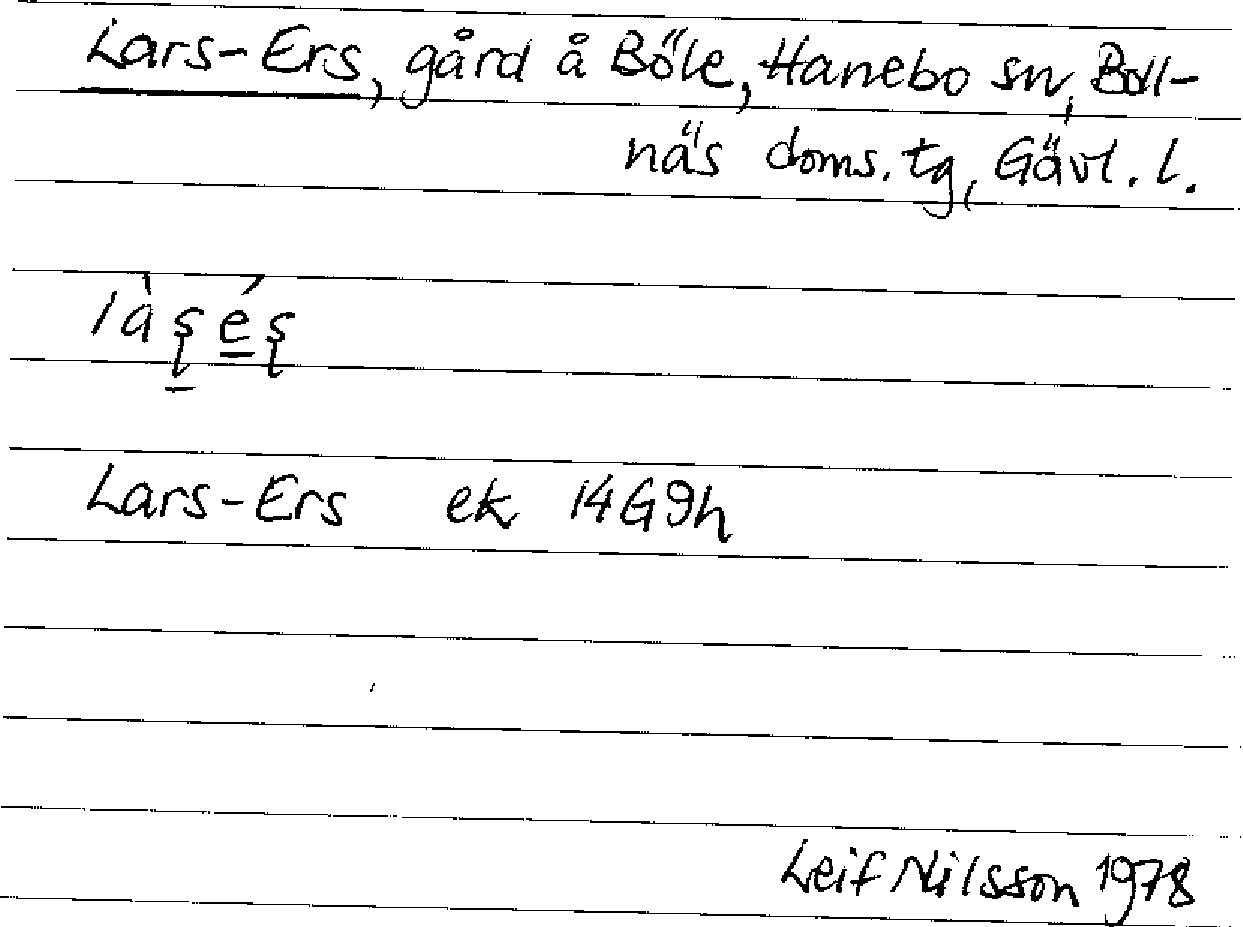 Lars-Ers, gård å Böle, Hanebo sn, Boll-
näs doms. tg, Gävl. l.
làʂéʂ
Lars-Ers ek 14G9h
Leif Nilsson 1978